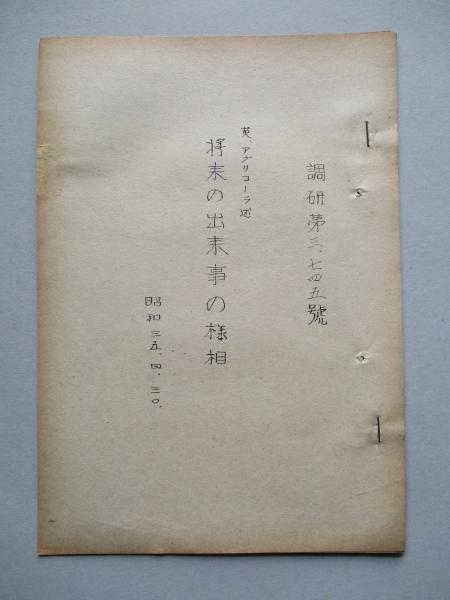 調研第三、七四五號
英、アグリコーラ述
将来の出来事の様相
昭和三五、四、三〇、